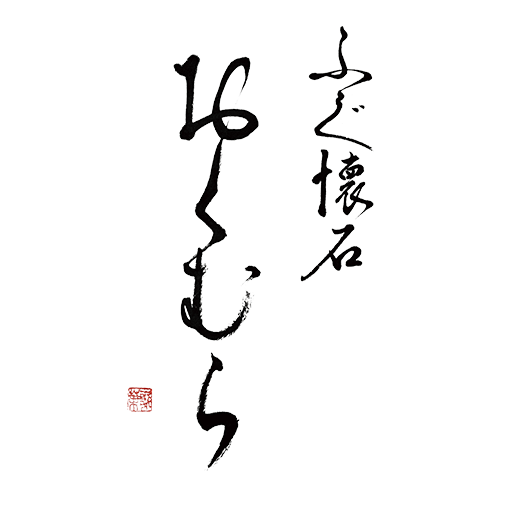 ふぐ懐石
おくむら